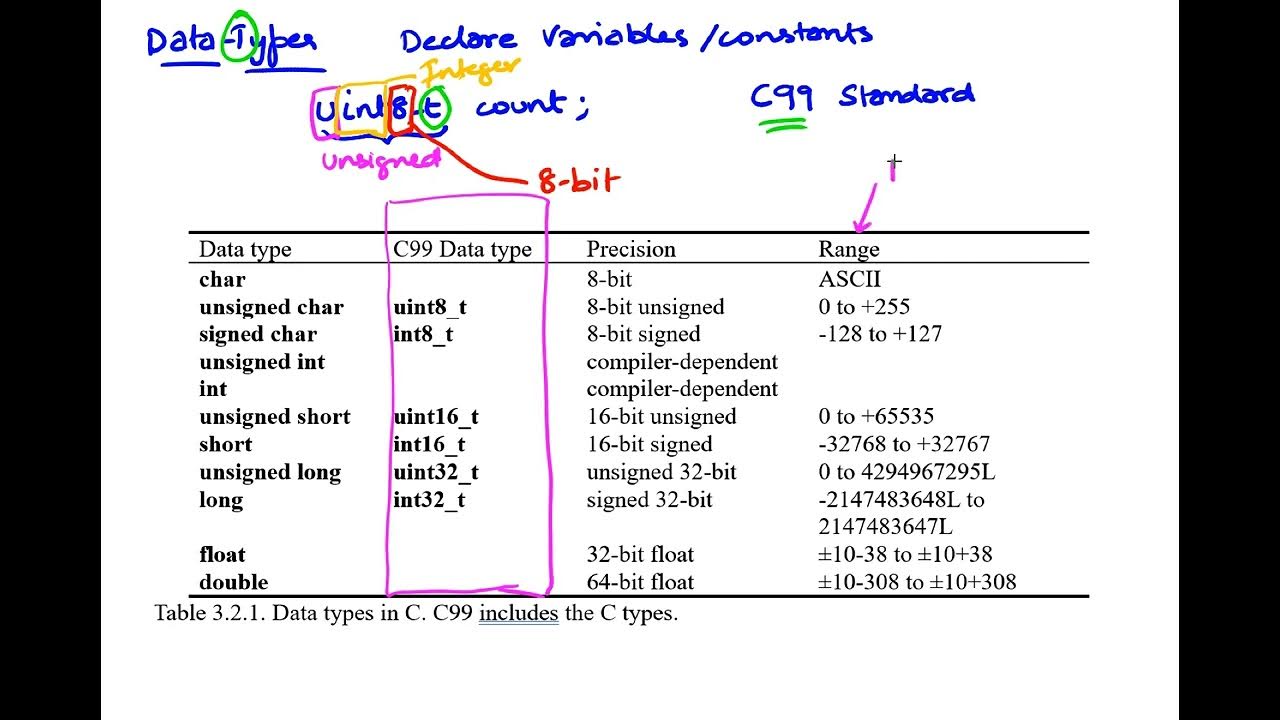 Data-Types Declare Variables/constants
Integer
uint8_t count; C99 Standard
Unsigned
8-bit
Data type C99 Data type Precision Range
char 8-bit ASCII
unsigned char uint8_t 8-bit unsigned 0 to +255
signed char int8_t 8-bit signed -128 to +127
unsigned int compiler-dependent
int compiler-dependent
unsigned short uint16_t 16-bit unsigned 0 to +65535
short int16_t 16-bit signed -32768 to +32767
unsigned long uint32_t unsigned 32-bit 0 to 4294967295L
long int32_t signed 32-bit -2147483648L to
2147483647L
float 32-bit float ±10-38 to ±10+38
double 64-bit float ±10-308 to ±10+308
Table 3.2.1. Data types in C. C99 includes the C types.